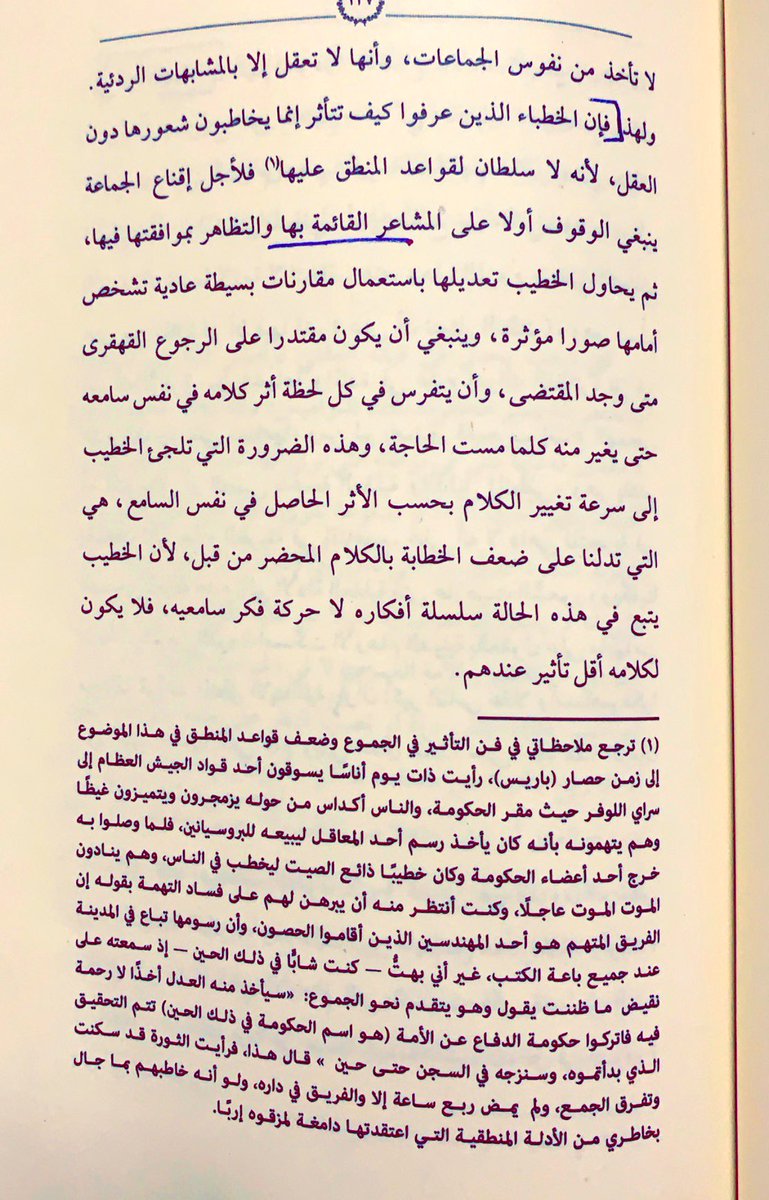 لا تأخذ من نفوس الجماعات، وأنها لا تعقل إلا بالمشابهات الردئية.
ولهذا فإن الخطباء الذين عرفوا كيف تتأثر إنما يخاطبون شعورها دون
العقل، لأنه لا سلطان لقواعد المنطق عليها(١) فلأجل إقناع الجماعة
ينبغي الوقوف أولا على المشاعر القائمة بها والتظاهر بموافقتها فيها،
ثم يحاول الخطيب تعديلها باستعمال مقارنات بسيطة عادية تشخص
أمامها صورا مؤثرة، وينبغي أن يكون مقتدرا على الرجوع القهقرى
متى وجد المقتضى، وأن يتفرس في كل لحظة أثر كلامه في نفس سامعه
حتى يغير منه كلما مست الحاجة، وهذه الضرورة التي تلجئ الخطيب
إلى سرعة تغيير الكلام بحسب الأثر الحاصل في نفس السامع، هي
التي تدلنا على ضعف الخطابة بالكلام المحضر من قبل، لأن الخطيب
يتبع في هذه الحالة سلسلة أفكاره لا حركة فكر سامعيه، فلا يكون
لكلامه أقل تأثير عندهم.
(١) ترجع ملاحظاتي في فن التأثير في الجموع وضعف قواعد المنطق في هذا الموضوع
إلى زمن حصار (باريس)، رأيت ذات يوم أناسًا يسوقون أحد قواد الجيش العظام إلى
سراي اللوفر حيث مقر الحكومة، والناس أكداس من حوله يزمجرون ويتميزون غيظًا
وهم يتهمونه بأنه كان يأخذ رسم أحد المعاقل ليبيعه للبروسيانين، فلما وصلوا به
خرج أحد أعضاء الحكومة وكان خطيبًا ذائع الصيت ليخطب في الناس، وهم ينادون
الموت الموت عاجلًا، وكنت أنتظر منه أن يبرهن لهم على فساد التهمة بقوله إن
الفريق المتهم هو أحد المهندسين الذين أقاموا الحصون، وأن رسومها تباع في المدينة
عند جميع باعة الكتب، غير أني بهتُّ — كنت شابًّا في ذلك الحين — إذ سمعته على
نقيض ما ظننت يقول وهو يتقدم نحو الجموع: «سيأخذ منه العدل أخذًا لا رحمة
فيه فاتركوا حكومة الدفاع عن الأمة (هو اسم الحكومة في ذلك الحين) تتم التحقيق
الذي بدأتموه، وسنزجه في السجن حتى حين » قال هذا، فرأيت الثورة قد سكنت
وتفرق الجمع، ولم يمض ربع ساعة إلا والفريق في داره، ولو أنه خاطبهم بما جال
بخاطري من الأدلة المنطقية التي اعتقدتها دامغة لمزقوه إربًا.